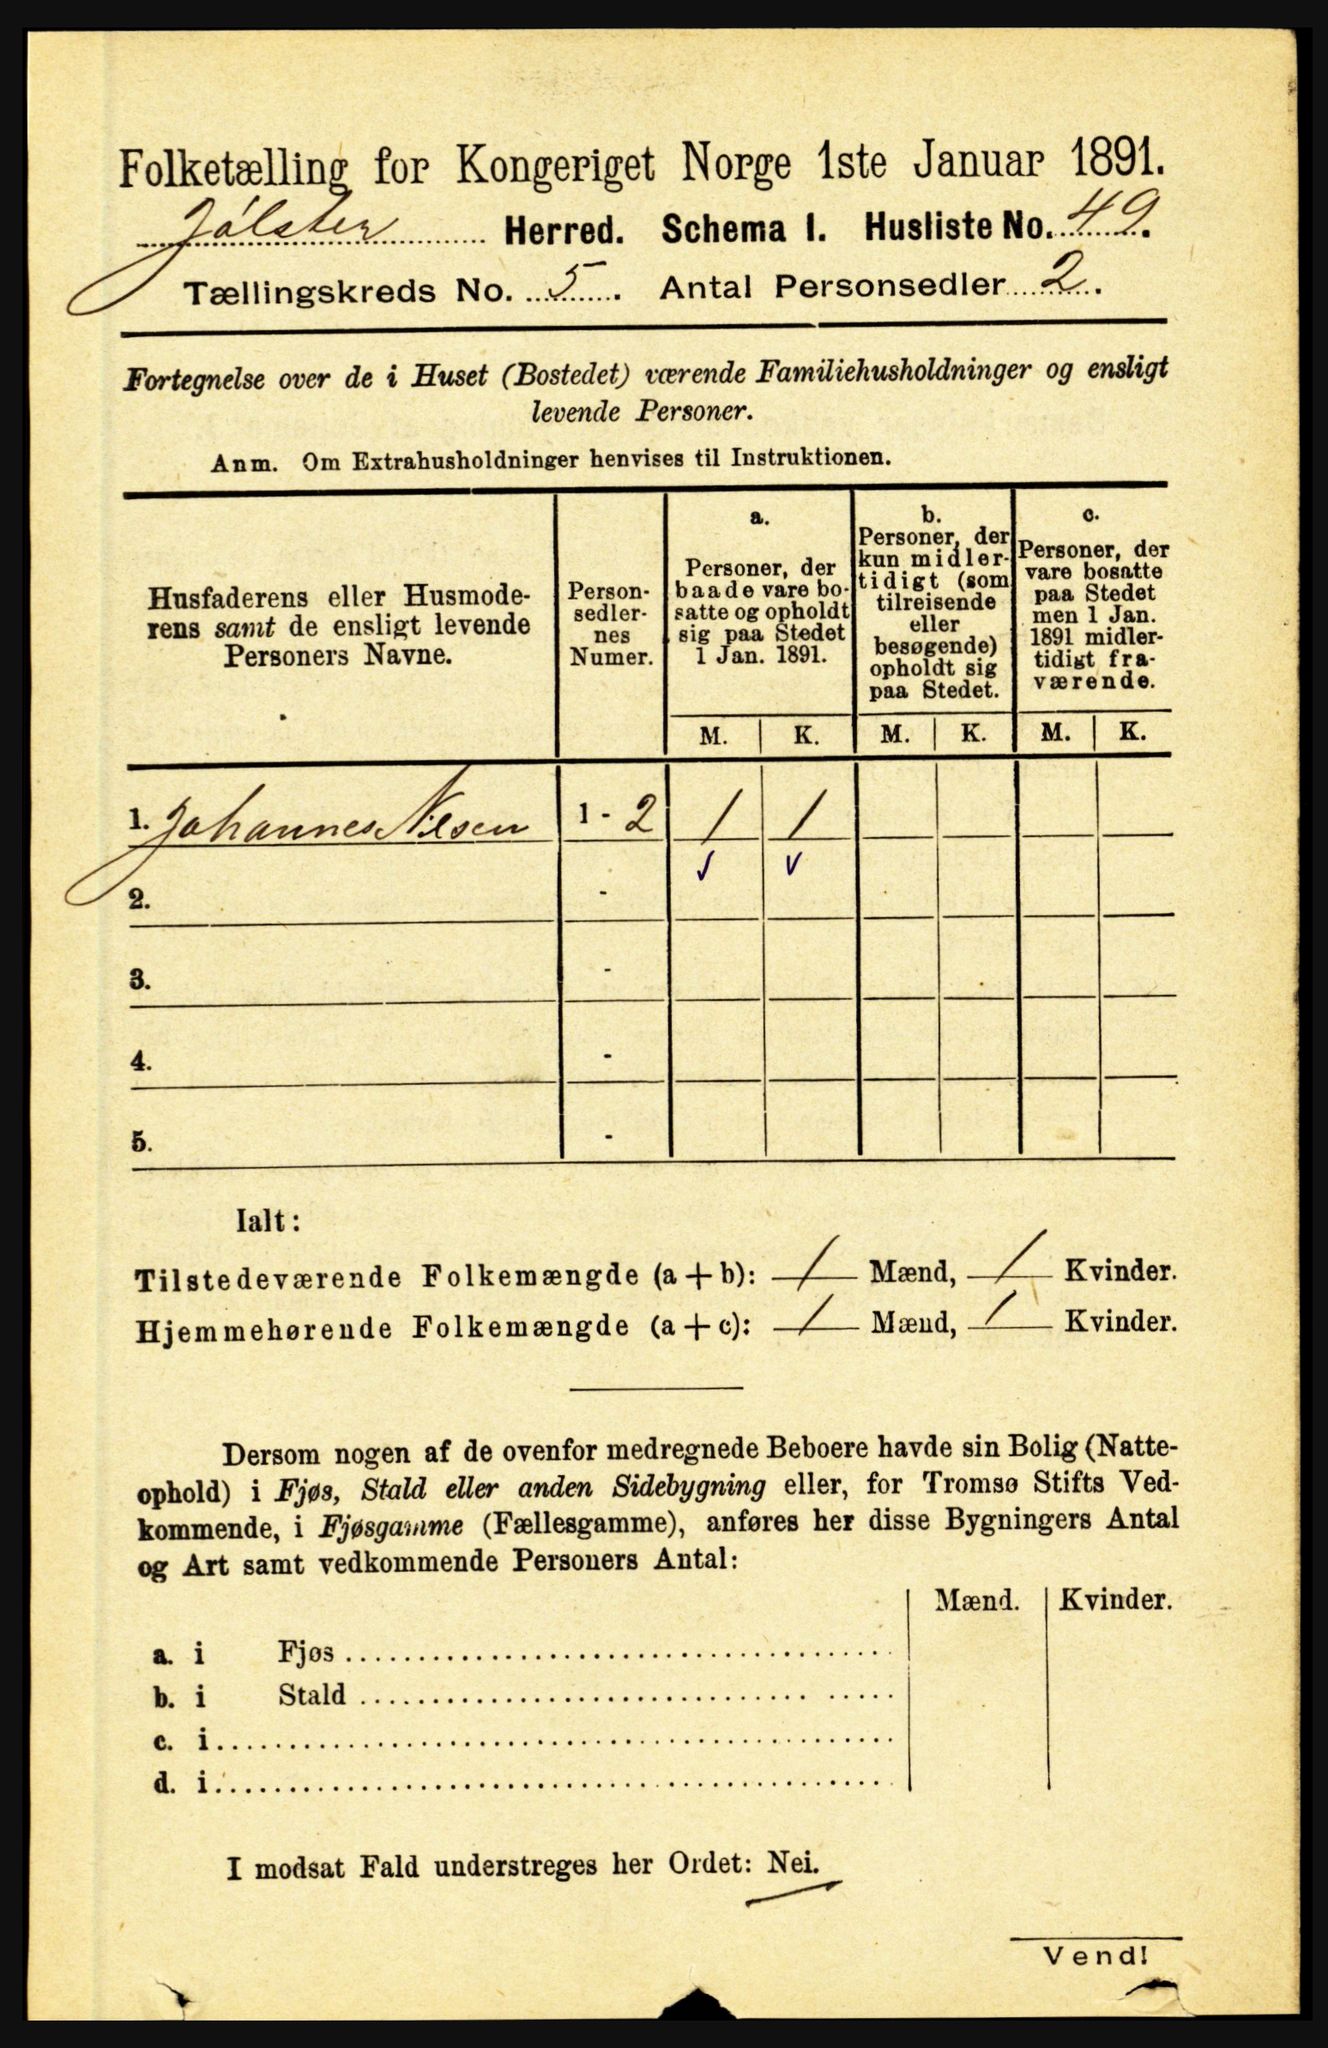 Folketælling for Kongeriget Norge 1ste Januar 1891.
Jølster Herred. Schema I. Husliste No. 49.
Tællingskreds No. 5. Antal Personsedler 2.
Fortegnelse over de i Huset (Bostedet) værende Familiehusholdninger og ensligt
levende Personer.
Anm. Om Extrahusholdninger henvises til Instruktionen.
Husfaderens eller Husmode-
rens samt de ensligt levende
Personers Navne.
Person-
sedler-
nes
Numer.
a.
Personer, der
baade vare bo-
satte og opholdt
sig paa Stedet
1 Jan. 1891.
b.
Personer, der
kun midler-
tidigt (som
tilreisende
eller
besøgende)
opholdt sig
paa Stedet.
c.
Personer, der
vare bosatte
paa Stedet
men 1 Jan.
1891 midler-
tidigt fra-
værende.
M. K. M. K. M. K.
1. Johannes Nilsen 1 - 2 1 1
2. -
3. -
4. -
5. -
Ialt:
Tilstedeværende Folkemængde (a+b): 1 Mænd, 1 Kvinder.
Hjemmehørende Folkemængde (a+c): 1 Mænd, 1 Kvinder.
Dersom nogen af de ovenfor medregnede Beboere havde sin Bolig (Natte-
ophold) i Fjøs, Stald eller anden Sidebygning eller, for Tromsø Stifts Ved-
kommende, i Fjøsgamme (Fællesgamme), anføres her disse Bygningers Antal
og Art samt vedkommende Personers Antal:
Mænd. Kvinder.
a. i Fjøs
b. i Stald
c. i
d. i
I modsat Fald understreges her Ordet: Nei.
Vend!